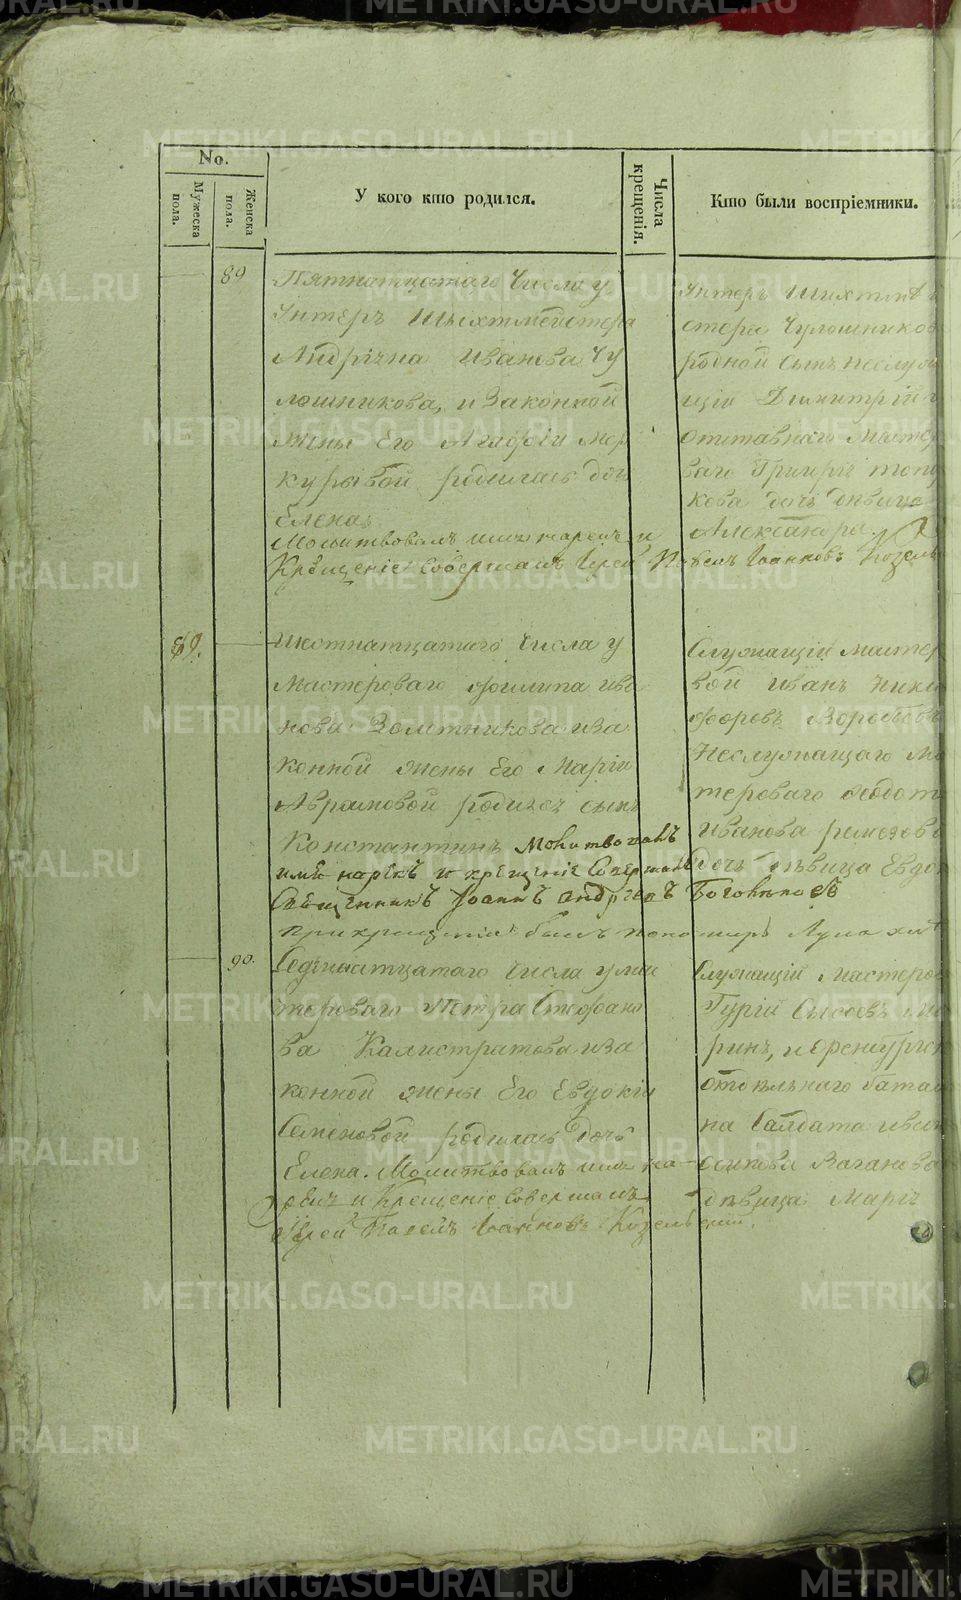 No.
Мужеска пола.
Женска пола.
У кого кто родился.
Числа крещенія.
Кто были воспріемники.
89
Пятнатцатаго Числа у
Унтеръ Шихтмейстера
Андріана Иванова Чу
лошникова, и Законной
жены Его Агафіи Мер
курьевой родилась дочь
Елена.
Молитвовалъ имя нарекъ и
Крещеніе совершалъ Іерей Павелъ Іоанновъ
Унтеръ Шихтмей
стера Чулошникова
родной сынъ неслужа
щій Димитрій и
отставнаго Мастеро
ваго
кова дочь девица
Александра.
89.
Шестнатцатаго Числа у
Мастероваго Филипа Ива
нова Золотникова иза
конной жены Его Маріи
Аврамовой родился сынъ
Константинъ Молитвовалъ
имя нарекъ и крещеніе Совершалъ
Священникъ Іоаннъ Андреевъ
при крещеніи былъ пономарь Лука
Служащій мастеро
вой Иванъ Ники
форовъ
Неслужащаго Мас
тероваго Федота
Иванова
дочь девица Евдо
90.
Седмнатцатаго Числа у мас
тероваго Петра Стефано
ва Калистратова иза
конной жены Его Евдокіи
Семеновой родилась дочь
Елена. Молитвовалъ имя на-
рекъ и Крещеніе совершалъ
Іерей Павелъ Іоанновъ
Служащій Мастеровой
Гурій Сысоевъ
и Оренбургск
отдельнаго баталіо
на Салдата
Ваганова
девица Марі
METRIKI.GASO-URAL.RU